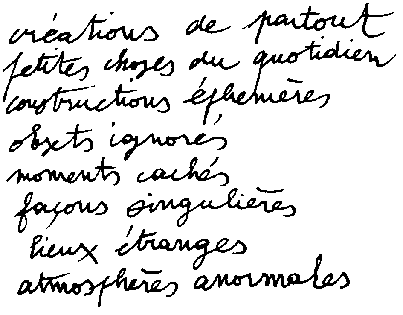 créations de partout
petites choses du quotidien
constructions éphemères
objets ignorés
moments cachés
façons singulières
lieux étranges
atmosphères anormales